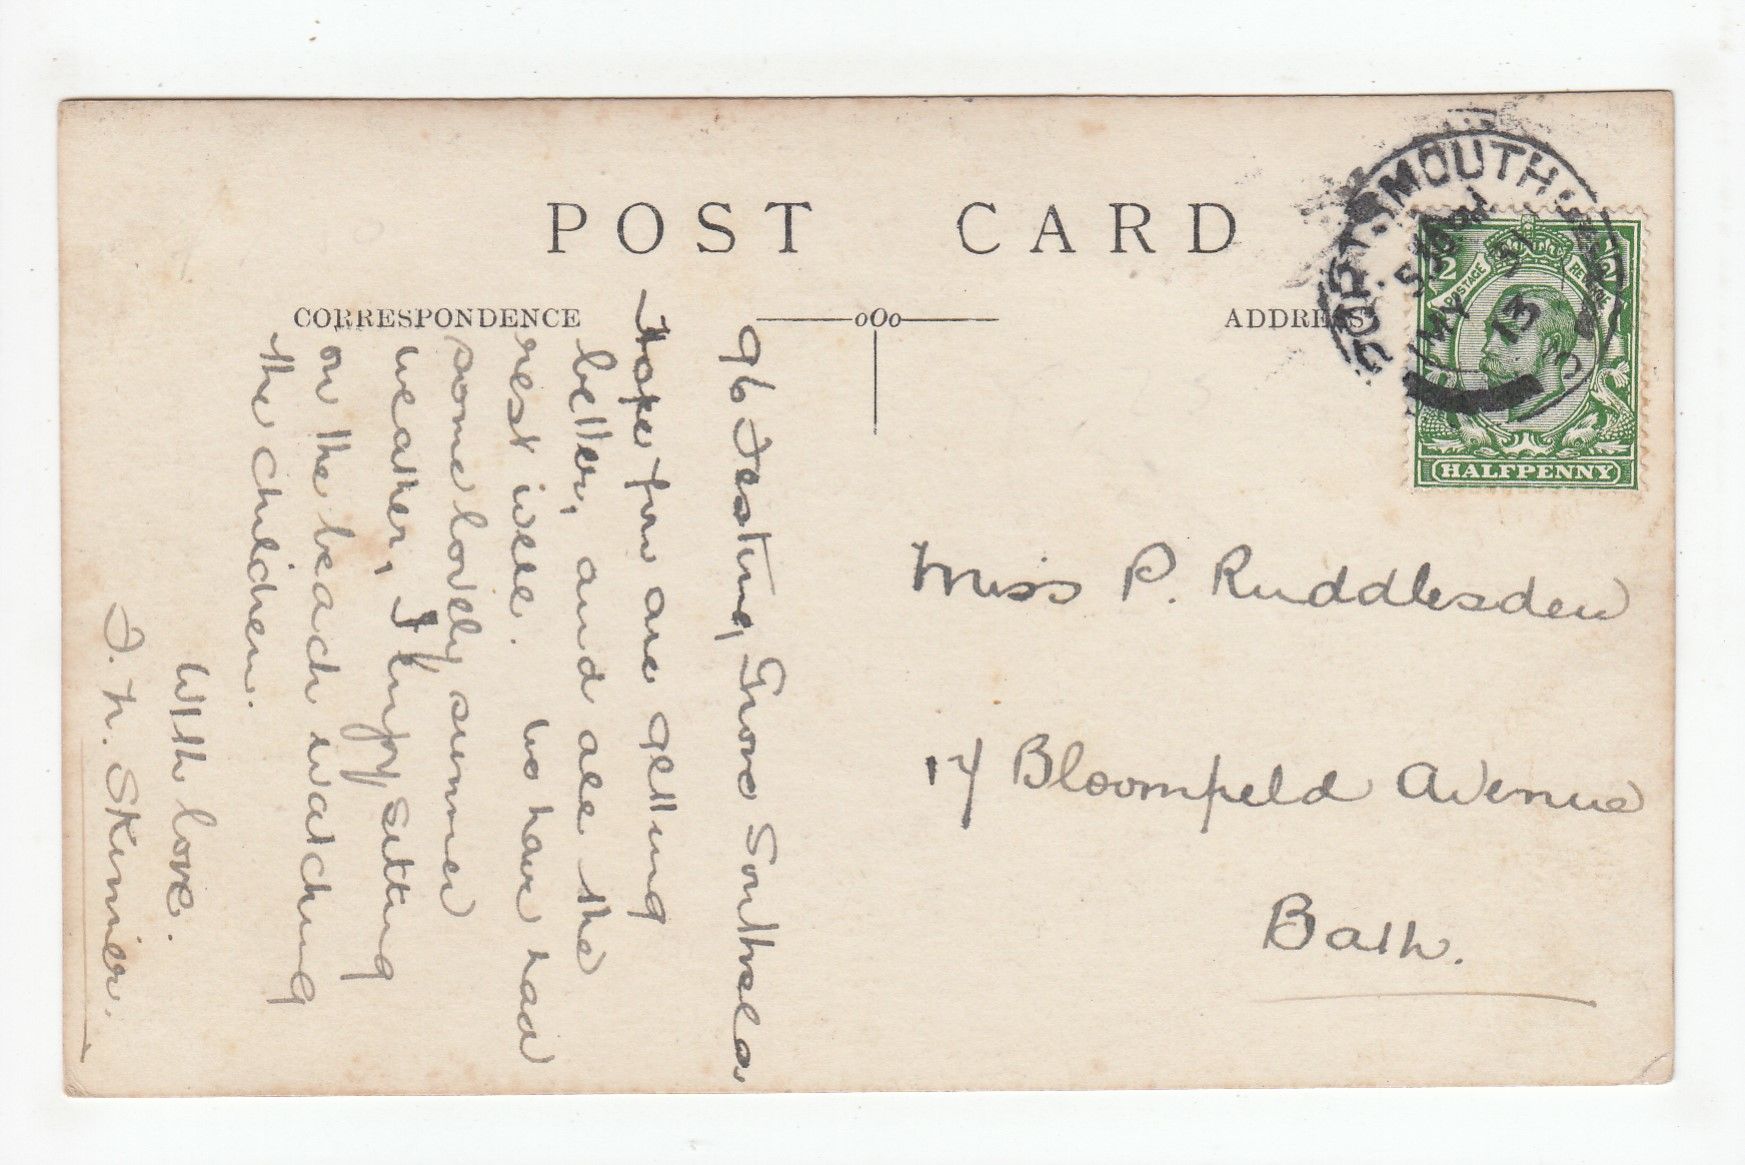 POST CARD
CORRESPONDENCE
oOo
ADDRESS
PORTSMOUTH
MY 31
13
1/2
1/2
POSTAGE
REVENUE
HALFPENNY
96 Festing Grove Southsea
Hope you are getting
better, and all the
rest well. We have had
some lovely summer
weather, I enjoy sitting
on the beach watching
the children.
With love.
Skinner.
Miss P. Ruddlesden
17 Bloomfield Avenue
Bath.